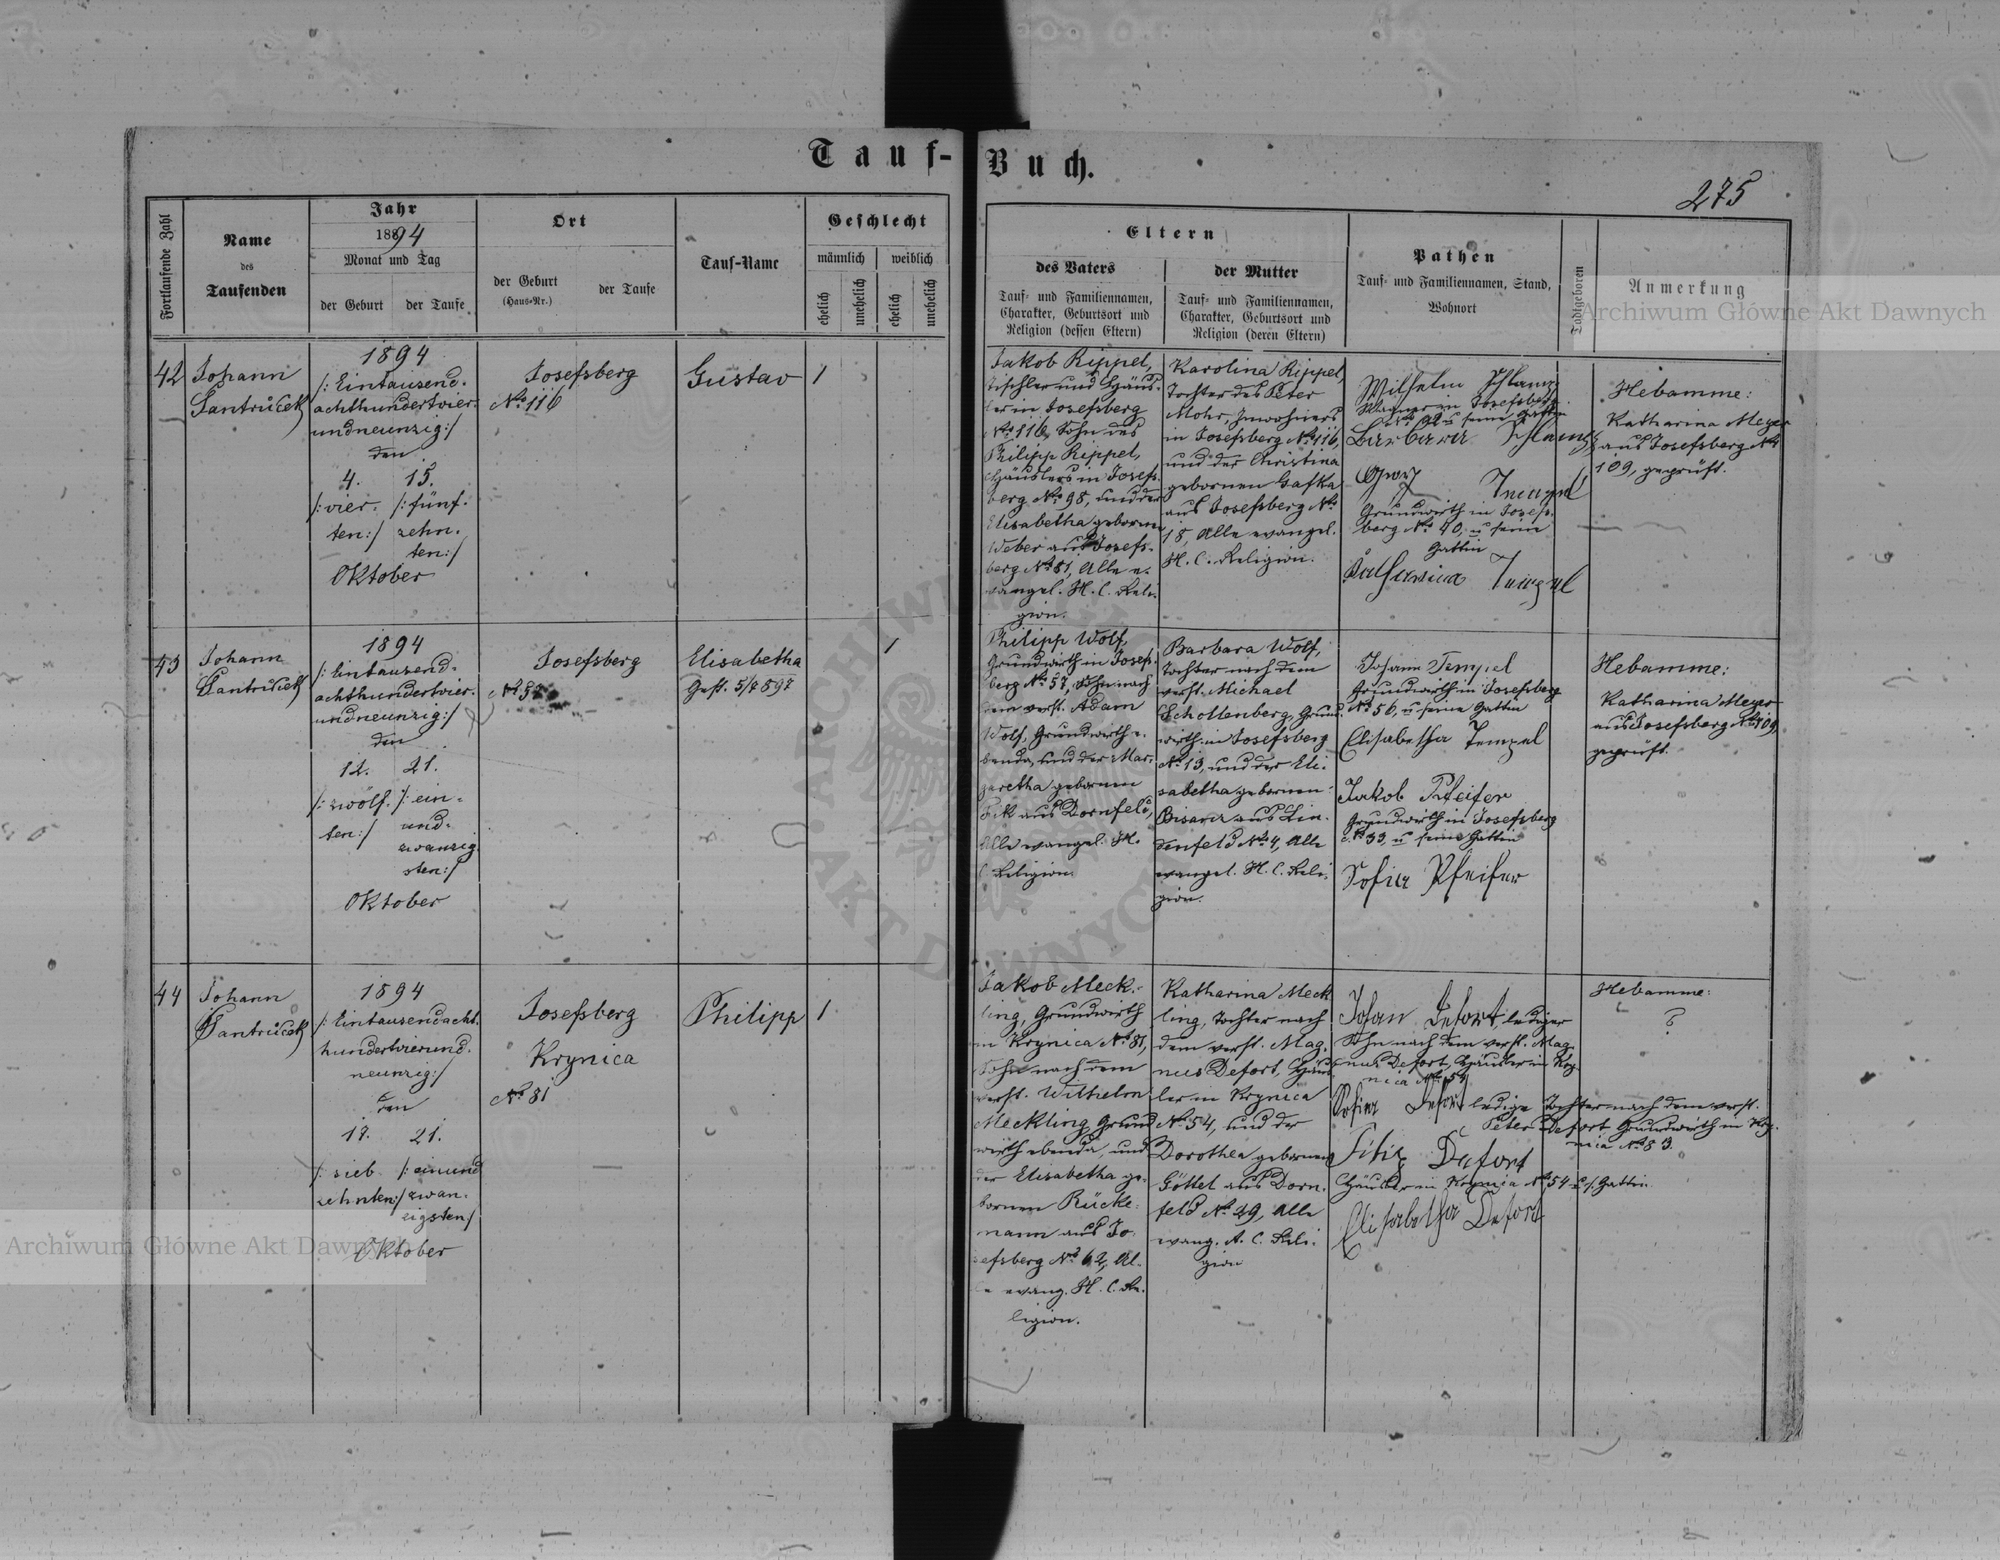 Tauf-Buch.
275
Fortlaufende Zahl
Name
des
Taufenden
Jahr
1894
Monat und Tag
der Geburt
der Taufe
Ort
der Geburt
(Haus-Nr.)
der Taufe
Tauf-Name
Geschlecht
männlich
weiblich
ehelich
unehelich
ehelich
unehelich
Eltern
des Vaters
Tauf- und Familiennamen,
Charakter, Geburtsort und
Religion (dessen Eltern)
der Mutter
Tauf- und Familiennamen,
Charakter, Geburtsort und
Religion (deren Eltern)
Pathen
Tauf- und Familiennamen, Stand,
Wohnort
Todtgeboren
Anmerkung
Archiwum Główne Akt Dawnych
42
Johann
Jantruček
1894
/: Eintausend-
achthundertvier-
undneunzig :/
den
4. 15.
/: vier- /: fünf-
ten :/ zehn-
ten :/
Oktober
Josefsberg
No 116
Gustav
1
Jakob Rippel,
Tischler und Häus-
ler in Josefsberg
No 116, Sohn des
Philipp Rippel,
Häuslers in Josefs-
berg No 98, und der
Elisabetha geborenen
Weber aus Josefs-
berg No 81, Alle e-
vangel. H. C. Reli-
gion.
Karolina Rippel,
Tochter des Peter
Mohr, Inwohners
in Josefsberg No 116,
und der Christina
gebornen Gafka
aus Josefsberg No
18, Alle evangel.
H. C. Religion.
Wilhelm
Wagner in Josefsberg
seine Gattin
Barbara
Grundwirth in Josefs-
berg No 40, u seine
Gattin
Hebamme:
Katharina Meyer
aus Josefsberg No
109, geprüft.
43
Johann
Jantruček
1894
/: Eintausend-
achthundertvier-
undneunzig :/
den
12. 21.
/: zwölf- /: ein-
ten :/ und-
zwanzig-
sten :/
Oktober
Josefsberg
No 57
Elisabetha
Gest. 5/7 897
1
Philipp Wolf,
Grundwirth in Josefs-
berg No 57, Sohn nach
dem verst. Adam
Wolf, Grundwirth e-
benda, und der Mar-
garetha gebornen
Fik aus Dornfeld,
Alle evangel. H.
C. Religion.
Barbara Wolf,
Tochter nach dem
verst. Michael
Schollenberg, Grund-
wirth in Josefsberg
No 13, und der Eli-
sabetha gebornen
Bisara aus Lin-
denfeld No 4, Alle
evangel. H. C. Reli-
gion.
Johann Tempel
Grundwirth in Josefsberg
No 56, u seine Gattin
Elisabetha Tempel
Jakob Pfeifer
Grundwirth in Josefsberg
No 33, u seine Gattin
Sofia Pfeifer
Hebamme:
Katharina Meyer
aus Josefsberg No 109,
geprüft.
44
Johann
Jantruček
1894
/: Eintausendacht-
hundertvierund-
neunzig :/
den
17. 21.
/: sieb- /: einund
zehnten :/ zwan-
zigsten /
Oktober
Josefsberg
Krynica
No 81
Philipp
1
Jakob Meck-
ling, Grundwirth
in Krynica No 81,
Sohn nach dem
verst. Wilhelm
Meckling Grund-
wirth ebenda, und
der Elisabetha ge-
bornen Rücke-
mann aus Jo-
sefsberg No 62, Al-
le evang. H. C. Re-
ligion.
Katharina Meck
ling, Tochter nach
dem verst. Mag-
nus Defort, Häus-
ler in Krynica
No 54, und der
Dorothea gebornen
Göttel aus Dorn-
feld No 29, Alle
evang. A. C. Reli-
gion
Johan Defort lediger
Sohn nach dem verst. Mag-
nus Defort, Häusler in Kry-
nica No 54
Sofia Defort ledige Tochter nach dem verst.
Peter Defort Grundwirth in Kry-
nica No 83.
Filip Defort
Häusler in Krynica No 54 u s. Gattin
Elisabetha Defort
Hebamme:
?
ARCHIWUM
AKT DAWNYCH
Archiwum Główne Akt Dawnych